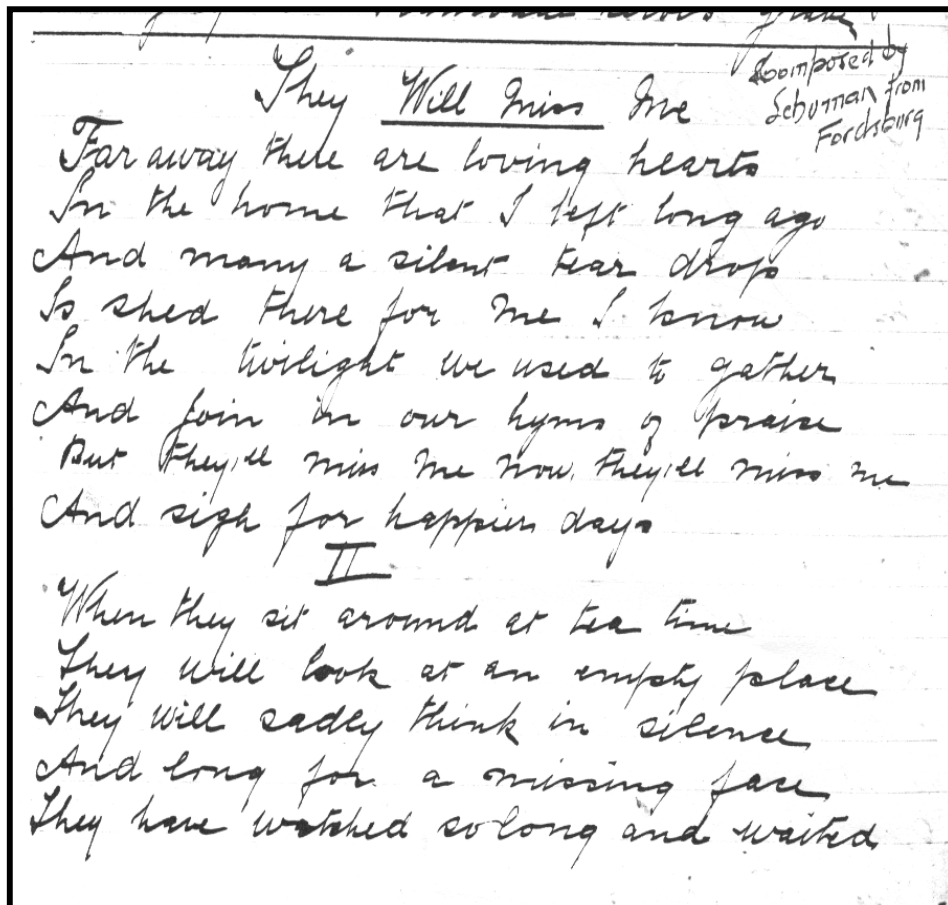 grave
They Will Miss Me
Composed by
Schuman from
Fordsburg
Far away there are loving hearts
In the home that I left long ago
And many a silent tear drops
Is shed there for me I know
In the twilight we used to gather
And join in our hyms of praise
But they'll miss me now, they'll miss me
And sigh for happier days
II
When they sit around at tea time
They will look at an empty place
They will sadly think in silence
And long for a missing face
They have watched so long and waited